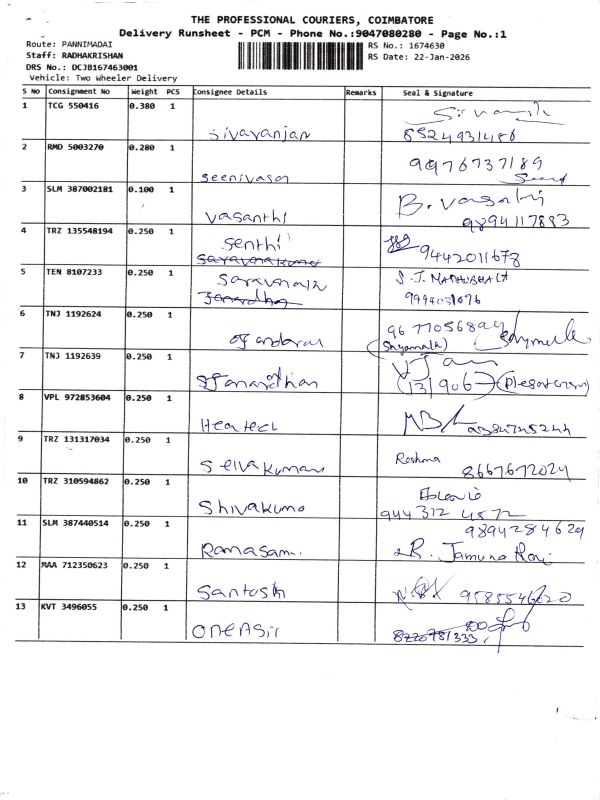 THE PROFESSIONAL COURIERS, COIMBATORE
Delivery Runsheet - PCM - Phone No.:9047080280 - Page No.:1
Route: PANNIMADAI
RS No.: 1674630
Staff: RADHAKRISHAN
RS Date: 22-Jan-2026
DRS No.: DCJB167463001
Vehicle: Two Wheeler Delivery
S No Consignment No Weight PCS Consignee Details Remarks Seal & Signature
1 TCG 550416 0.380 1
Sivayanjan 8524931486
2 RMD 5003270 0.280 1
Seenivasan 9976737189
3 SLM 387002181 0.100 1
Vasanthi B. Vasanthi
9894117883
4 TRZ 135548194 0.250 1
Senthi 9442011678
Saravanakumar
5 TEN 8107233 0.250 1
Saravanan S.J. MADHUBHALA
Janardha
6 TNJ 1192624 0.250 1
(Shyamala)
7 TNJ 1192639 0.250 1
Janardhan
8 VPL 972853604 0.250 1
Heatecl
9 TRZ 131317034 0.250 1
Selvakumar Reshma
8667672024
10 TRZ 310594862 0.250 1
Shivakuma 944312 4572
11 SLM 387440514 0.250 1
9894284629
Ramasami R. Jamuna Rani
12 MAA 712350623 0.250 1
Santosh 9585546620
13 KVT 3496055 0.250 1
8220781333